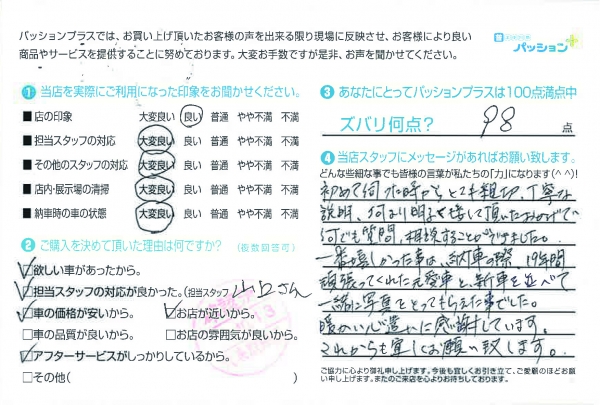 パッションプラスでは、お買い上げ頂いたお客様の声を出来る限り現場に反映させ、お客様により良い
商品やサービスを提供することに努めております。大変お手数ですが是非、お声を聞かせてください。
パッション+
1 当店を実際にご利用になった印象をお聞かせください。
■ 店の印象 大変良い 良い 普通 やや不満 不満
■ 担当スタッフの対応 大変良い 良い 普通 やや不満 不満
■ その他のスタッフの対応 大変良い 良い 普通 やや不満 不満
■ 店内・展示場の清掃 大変良い 良い 普通 やや不満 不満
■ 納車時の車の状態 大変良い 良い 普通 やや不満 不満
2 ご購入を決めて頂いた理由は何ですか? (複数回答可)
☑欲しい車があったから。
☑担当スタッフの対応が良かった。(担当スタッフ 山口さん
☑車の価格が安いから。 ☑お店が近いから。
□車の品質が良いから。 □お店の雰囲気が良いから。
☑アフターサービスがしっかりしているから。
□その他( )
3 あなたにとってパッションプラスは100点満点中
ズバリ何点? 98 点
4 当店スタッフにメッセージがあればお願い致します。
どんな些細な事でも皆様の言葉が私たちの「力」になります(^^)!
初めて伺った時からとても親切、丁寧な
説明、何より明るく接して頂いたおかげで
何でも質問、相談することができました。
一番嬉しかった事は、納車の際、19年間
頑張ってくれた元愛車と、新車を並べて
一緒に写真をとってもらえた事でした。
暖かい心遣いに感謝しています。
これからも宜しくお願い致します。
ご協力に心より御礼申し上げます。今後も宜しくお引き立て、ご愛顧のほどお願
い申し上げます。またのご来店を心よりお待ちしております。